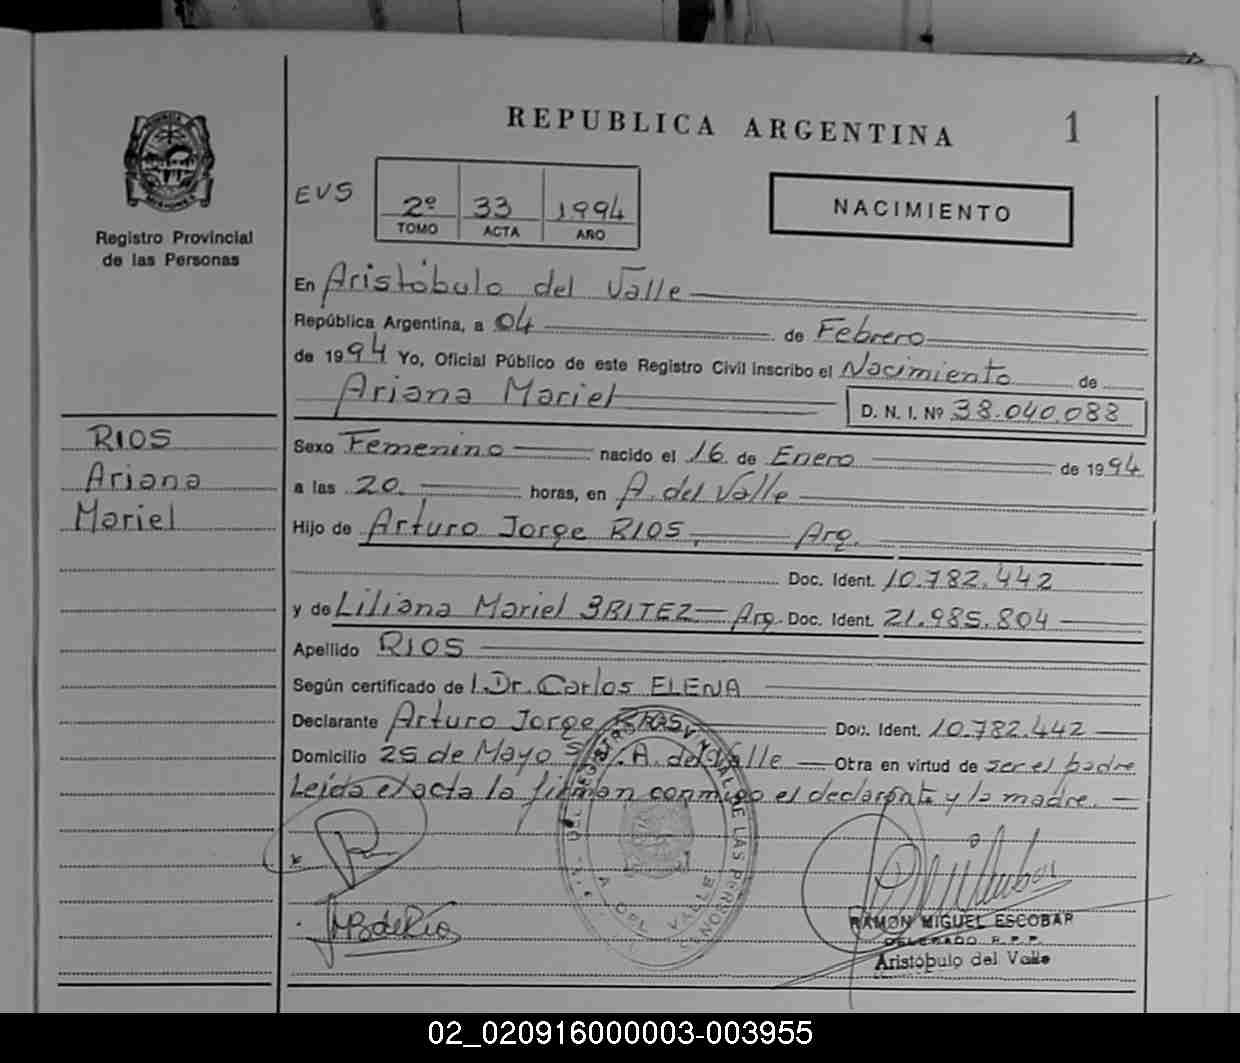 REPUBLICA ARGENTINA 1
EVS
2º 33 1994
TOMO ACTA AÑO
NACIMIENTO
Registro Provincial
de las Personas
En Aristóbulo del Valle
República Argentina, a 04 de Febrero
de 1994 Yo, Oficial Público de este Registro Civil inscribo el Nacimiento de
Ariana Mariel D. N. I. Nº 38.040.088
RIOS
Ariana
Mariel
Sexo Femenino nacido el 16 de Enero de 1994
a las 20 horas, en A. del Valle
Hijo de Arturo Jorge RIOS, Arg.
Doc. Ident. 10.782.442
y de Liliana Mariel BRITEZ Arg. Doc. Ident. 21.985.804
Apellido RIOS
Según certificado de Dr. Carlos ELENA
Declarante Arturo Jorge RIOS Doc. Ident. 10.782.442
Domicilio 25 de Mayo A. del Valle Otra en virtud de ser el padre
Leída exacta la firman conmigo el declarante y la madre.
A. DEL VALLE
RAMON MIGUEL ESCOBAR
DELEGADO R.P.P.
Aristóbulo del Valle
02_020916000003-003955